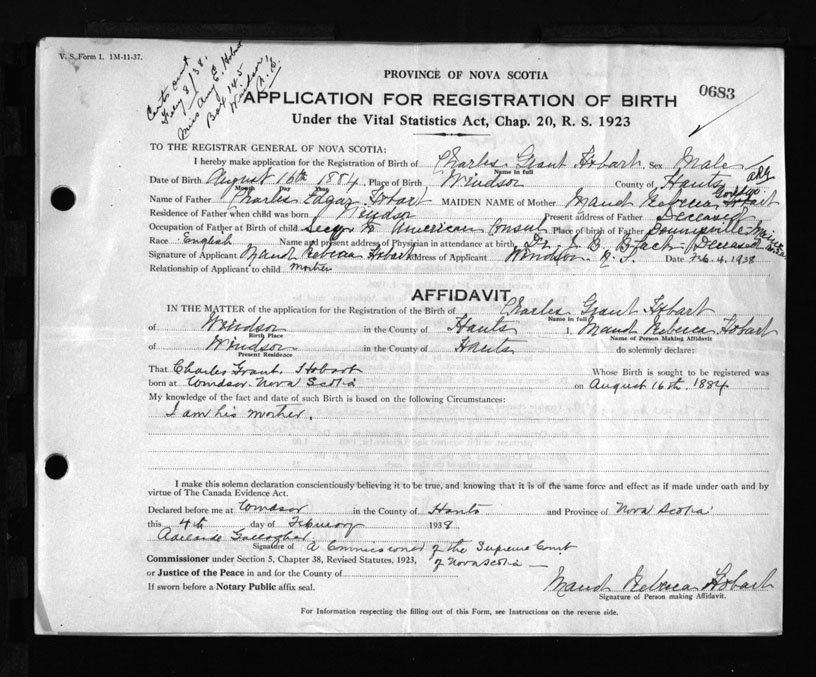 V. S. Form 1. 1M-11-37.
Certs sent
Feby 8/38.
Miss Amy E. Hobart
Box 145
Windsor,
N.S.
PROVINCE OF NOVA SCOTIA
0683
APPLICATION FOR REGISTRATION OF BIRTH
Under the Vital Statistics Act, Chap. 20, R. S. 1923
TO THE REGISTRAR GENERAL OF NOVA SCOTIA:
I hereby make application for the Registration of Birth of Charles Grant Hobart Sex Male
Name in full
Date of Birth August 16th 1884, Place of Birth Windsor County of Hants
Month Day Year
Name of Father Charles Edgar Hobart MAIDEN NAME of Mother Maud Rebecca Hobart
Residence of Father when child was born Windsor Present address of Father Deceased
Occupation of Father at Birth of child Secy to American Consul Place of birth of Father
Race English Name and present address of Physician in attendance at birth Dr. J. B. Black Deceased
Signature of Applicant Maud Rebecca Hobart Address of Applicant Windsor N.S. Date Feb. 4. 1938
Relationship of Applicant to child mother
AFFIDAVIT
IN THE MATTER of the application for the Registration of the Birth of Charles Grant Hobart
Name in full
of Windsor in the County of Hants I, Maud Rebecca Hobart
Birth Place Name of Person Making Affidavit
of Windsor in the County of Hants do solemnly declare:
Present Residence
That Charles Grant Hobart Whose Birth is sought to be registered was
born at Windsor Nova Scotia on August 16th 1884
My knowledge of the fact and date of such Birth is based on the following Circumstances:
I am his mother.
I make this solemn declaration conscientiously believing it to be true, and knowing that it is of the same force and effect as if made under oath and by
virtue of The Canada Evidence Act.
Declared before me at Windsor in the County of Hants and Province of Nova Scotia
this 4th day of February 1938
Adelaide Gallagher
Signature of A Commissioner of the Supreme Court
Commissioner under Section 5, Chapter 38, Revised Statutes, 1923, of Nova Scotia
or Justice of the Peace in and for the County of
If sworn before a Notary Public affix seal.
Maud Rebecca Hobart
Signature of Person making Affidavit.
For Information respecting the filling out of this Form, see Instructions on the reverse side.